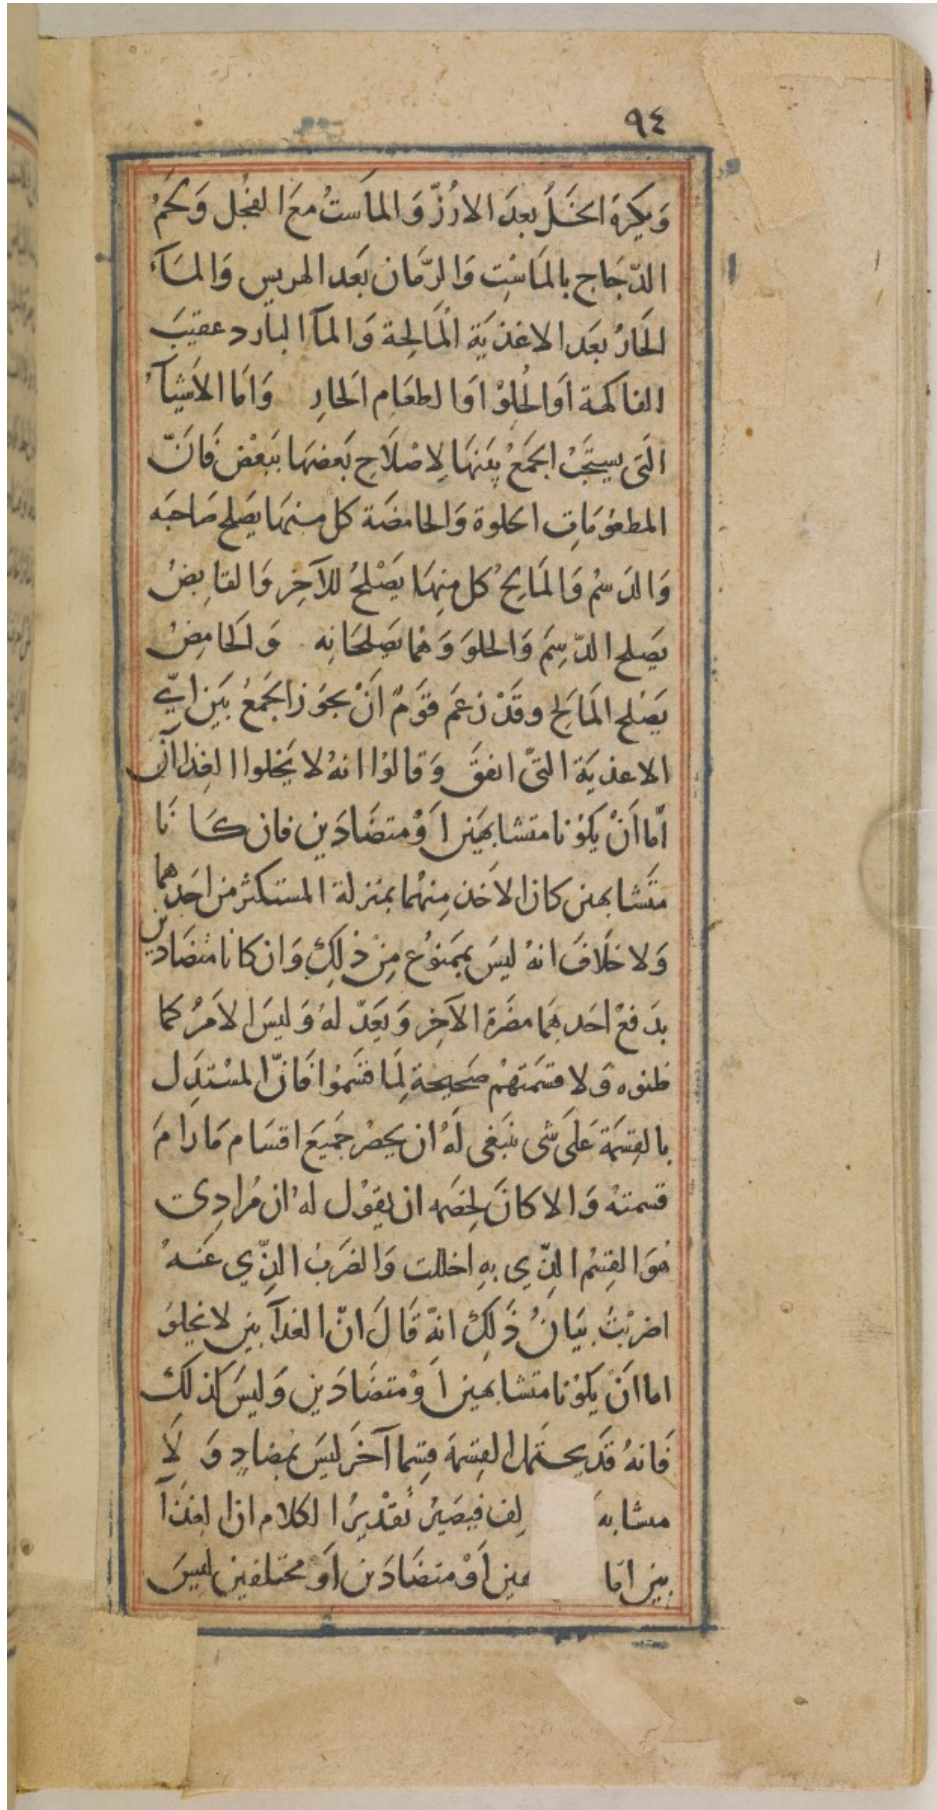 ٩٤
وَيكره الخَلّ بعدَ الارُزّ وَالماَستُ معَ الفجُل وَلحمُ
الدّجَاج بالمَاسْتِ وَالرّمان بَعد الهريس وَالمَآء
الحَارُ بعَد الاغذيَة المَالحِة وَالمآ البَارد عقيبَ
الفاكهة اوَالحُلوْ اوَالطعَام الحَار وَامَا الاَشيَآءُ
التى يسيحَبّ الجَمعُ بيَنهَا لِاصْلاَحِ بَعضهَا بَبعْض فَانّ
المطعوُمَاتِ الحلوة وَالحامضَة كل منهمَا يصَلح صَاحبَه
وَالدَسمُ وَالمَالحُ كل منِهمَا يَصْلحُ للآخِر وَالقابِضُ
يصَلح الدّسِمَ وَالحلوَ وَهمُا يصَلحَانِه وَالحَامِضُ
يصَلح المَالحَ وقَدْ زعَم قوَمٌ انَْ يجوَز الجَمعُ بيَن ايّ
الاغذيَة التىّ اتفقَ وَقالوُا انهُ لا يَخلوا الغذاآن
امّا اَنْ يكوُنا متشابهَين اَوْ متضَادَين فان كَانَا
متَشابهين كان الاَخذ منِهمُا بمنزلة المستكثر من احَدهما
وَلاخلَافَ انهُ ليَس بممَنوُع مِنْ ذلِكِ وَان كانا متضَادين
يدَفعْ احَدهمَا مضَرة الآخِر وَيعَدّ لهُ وَليسَ الاَمرُ كما
ظنوه وَلا قسَمتهمْ صَحِيحة لمِا قسَموُا فَانّ المسْتدَل
بالقِسمَة عَلىَ شى ينَبغى لَهُ ان يحصرُ جَميعَ اقسَام مَارَامَ
قسمتهُ وَالا كانَ لخِصَمه ان يقوُل لهُ ان مُرادى
هوَ القِسْم الذّي بهِ اخللت وَالضَربُ الذّي عَنهُ
اضربْتُ بيَانُ ذَلكِ انهّ قَالَ انّ الغذآ ين لايخلوَ
اما انَْ يكوُنا متشابهين اَوْ متضَادَين وَليسَ كذلك
فَانهُ قدَ يحتمَل القسِمَة قِسما آخَر ليسَ بمضَادٍ وَلَا
مشابه لف فيصَيرُ تقدْيرُ الكلام ان الغذآ
ين امّا هين اَوْ متضَادَين اَوْ مختلفين ليسَ